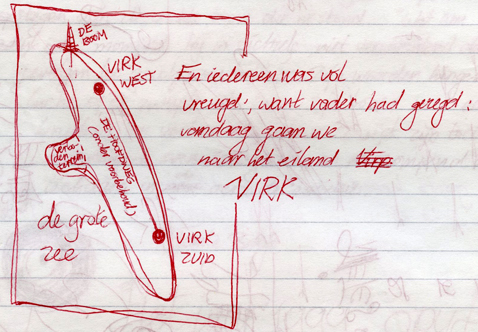 DE
BOOM
VIRK
WEST
DE HOOFDWEG
(onder voorbehoud)
verbo-
den
terrein
VIRK
ZUID
de grote
zee
En iedereen was vol
vreugd, want vader had gezegd:
vandaag gaan we
naar het eiland
VIRK